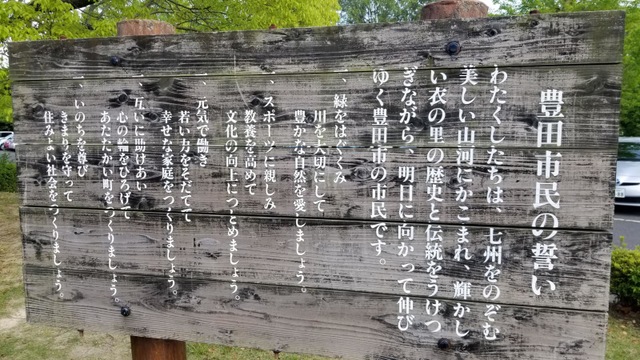 豊田市民の誓い
わたくしたちは、七州をのぞむ
美しい山河にかこまれ、輝かし
い衣の里の歴史と伝統をうけつ
ぎながら、明日に向かって伸び
ゆく豊田市の市民です。
一、緑をはぐくみ
川を大切にして
豊かな自然を愛しましょう。
一、スポーツに親しみ
教養を高めて
文化の向上につとめましょう。
一、元気で働き
若い力をそだてて
幸せな家庭をつくりましょう。
一、互いに助けあい
心の輪をひろげて
あたたかい町をつくりましょう。
一、いのちを尊び
きまりを守って
住みよい社会をつくりましょう。